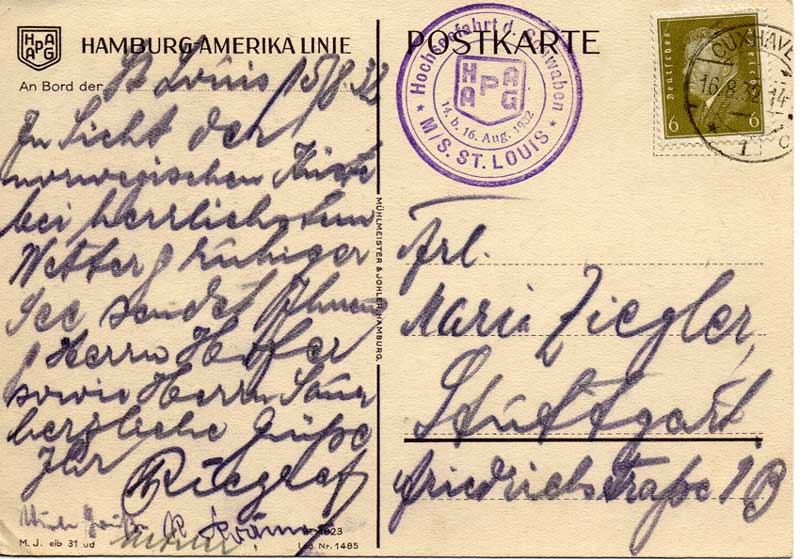 HAPAG
HAMBURG-AMERIKA LINIE
An Bord der St Louis 15/8.32
In Sicht der
norwegischen Küste
bei herrlichstem
Wetter & ruhiger
See sendet Ihnen
& Herrn Hofer
sowie Herrn
herzliche Grüße
Ihr
Riegraf
M. J. elb 31 ud
1923
Lag. Nr. 1485
MÜHLMEISTER & JOHLER, HAMBURG.
POSTKARTE
Hochseefahrt d. Schwaben
HAPAG
14. b. 16. Aug. 1932
★ M/S. ST. LOUIS ★
Deutsches
6 6
CUXHAVEN
16.8.32.14
Frl.
Maria Ziegler,
Stuttgart
Friedrichstraße 1B